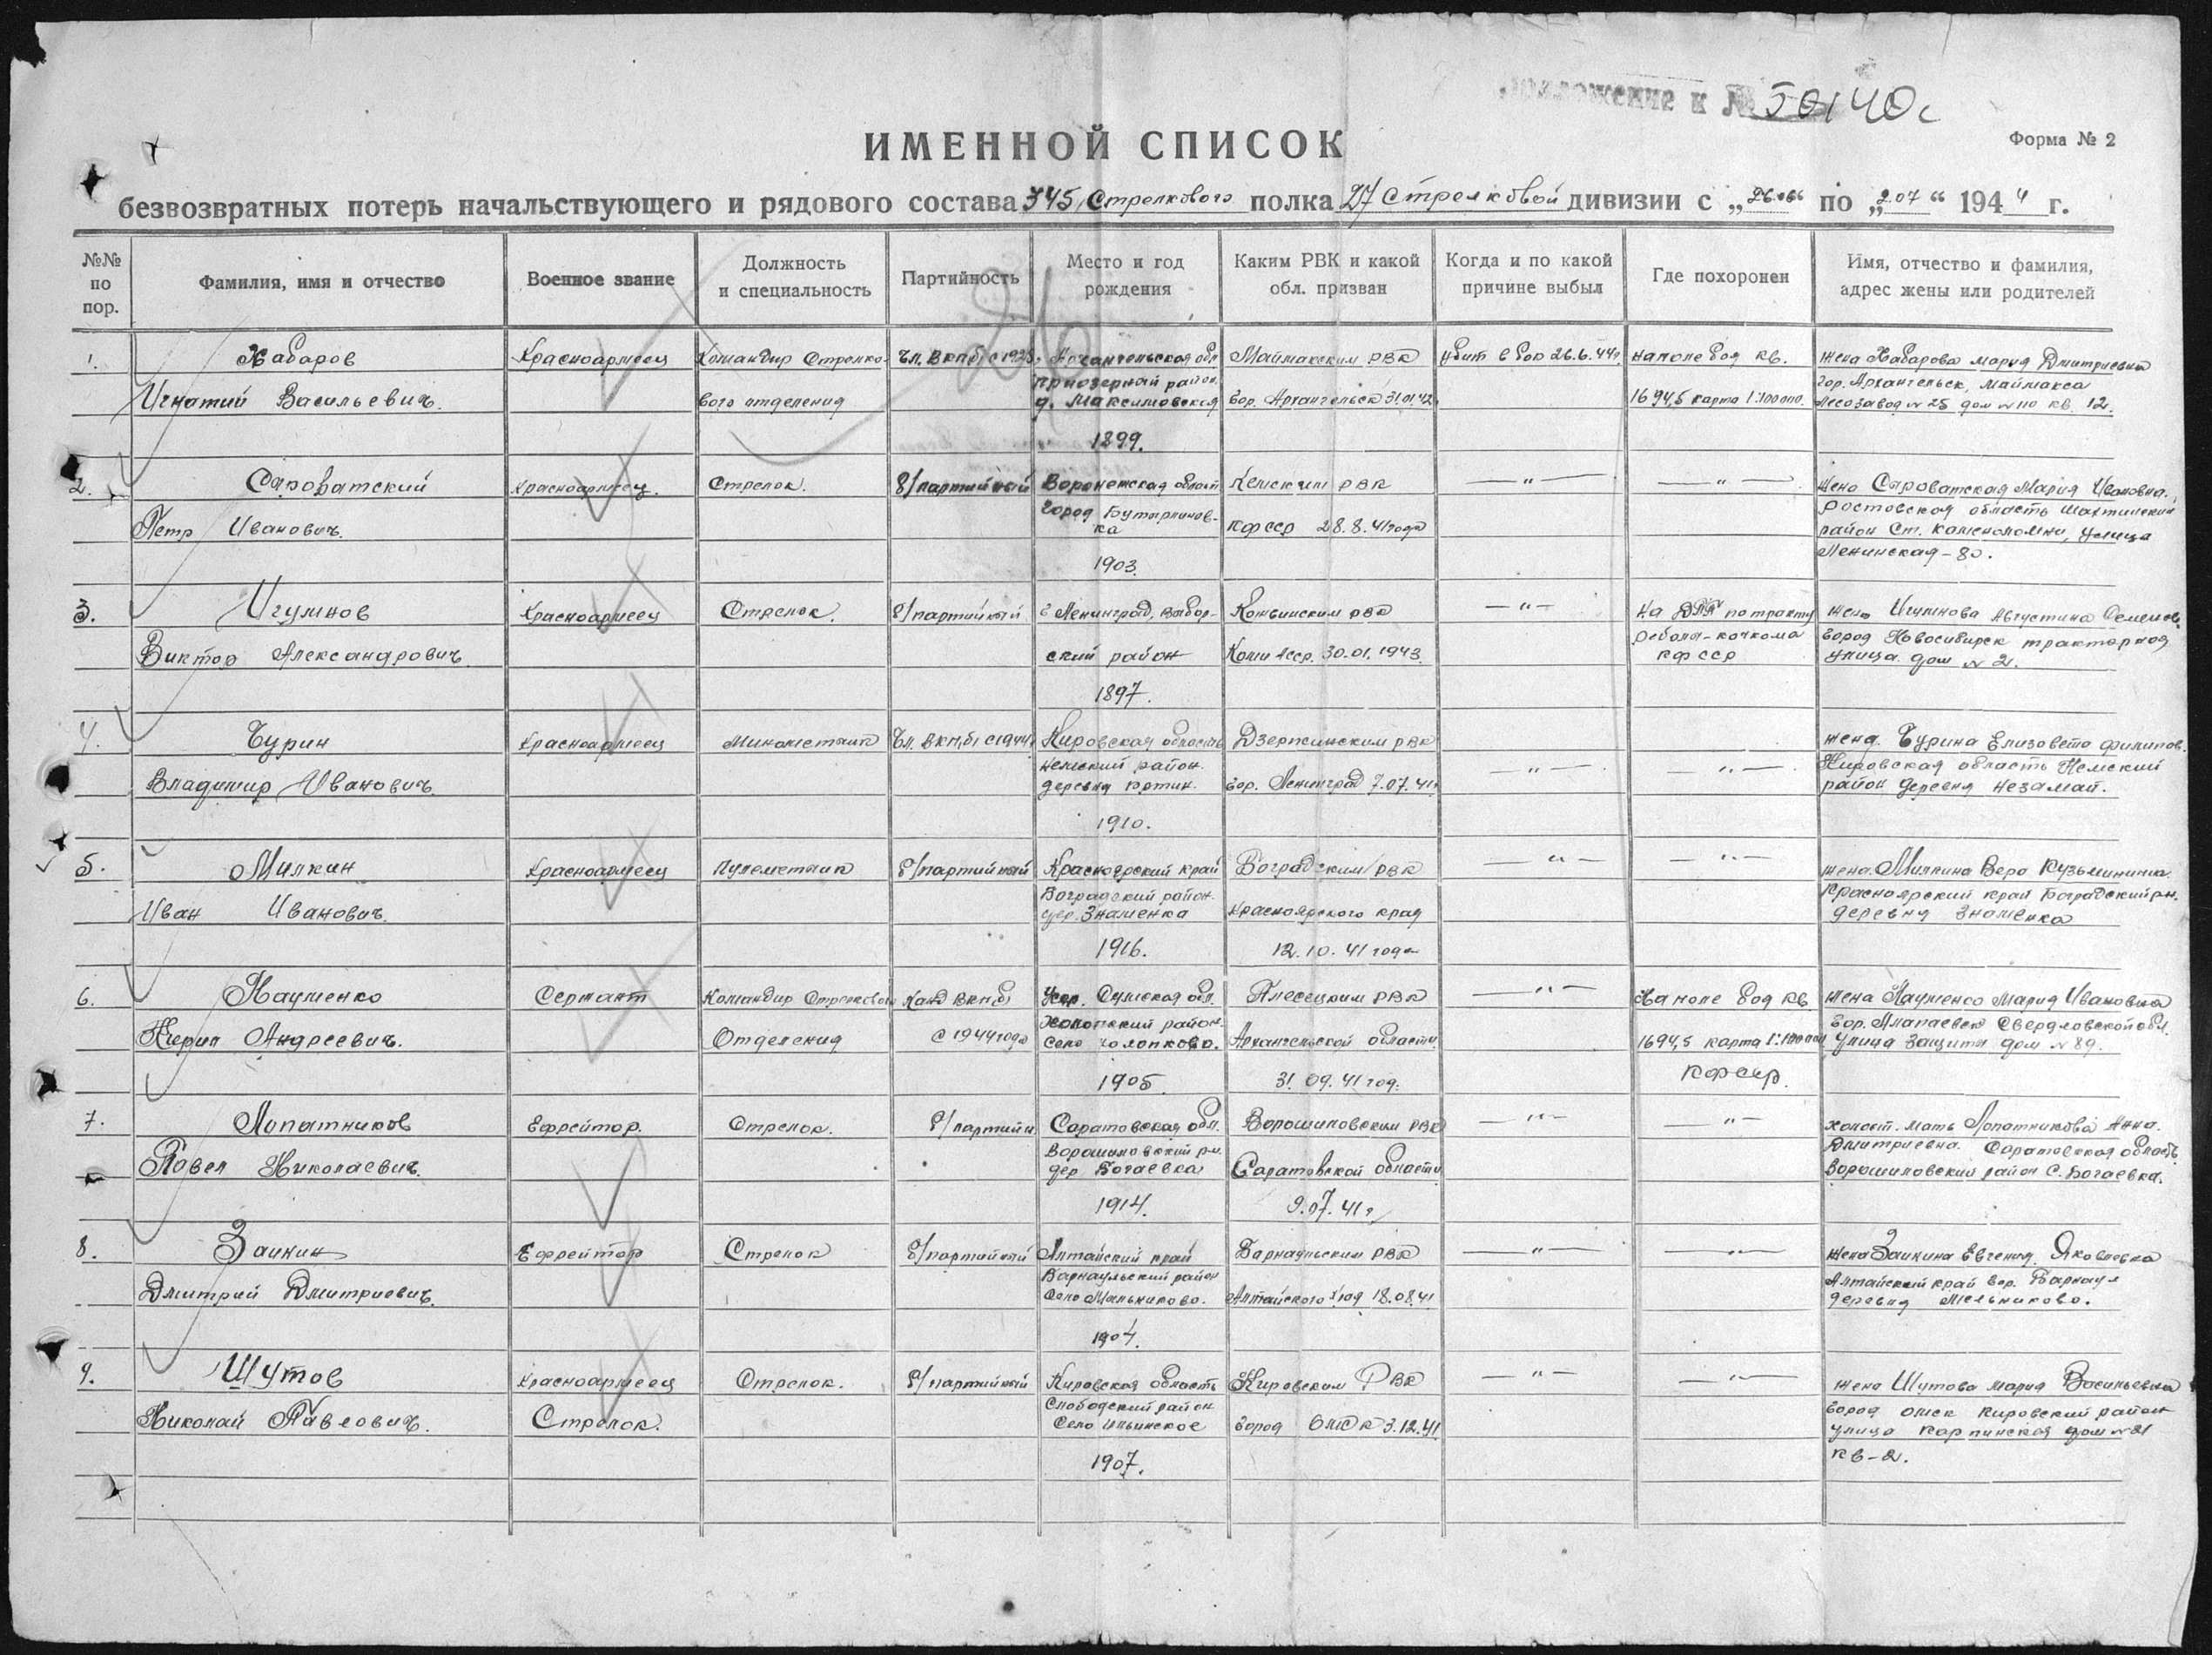 Приложение к № 50140с
ИМЕННОЙ СПИСОК
Форма № 2
безвозвратных потерь начальствующего и рядового состава 345 Стрелкового полка 27 Стрелковой дивизии с „26.06“ по „2.07“ 1944 г.
№№ по пор.
Фамилия, имя и отчество
Военное звание
Должность и специальность
Партийность
Место и год рождения
Каким РВК и какой обл. призван
Когда и по какой причине выбыл
Где похоронен
Имя, отчество и фамилия, адрес жены или родителей
1. Хабаров Красноармеец Командир Стрелко- Чл. ВКП(б) с 1928г Архангельская обл Маймакским РВК убит в бою 26.6.44г на поле боя кв. жена Хабарова Мария Дмитриевна
Игнатий Васильевич. вого отделения приозерный район. д. Максимовская гор. Архангельск 31.01.42 1694,5 карта 1:100000. гор. Архангельск, Маймакса
Лесозавод № 25 дом № 110 кв. 12.
1899.
2. Сыроватский Красноармеец. Стрелок. б/партийный Воронежская област Кемским РВК —"— —"— жена Сыроватская Мария Ивановна.
Петр Иванович. город Бутырлинов-ка КФССР 28.8.41 года Ростовская область Шахтинский
район Ст. Каменоломни, улица
Ленинская-80.
1903.
3. Игумнов Красноармеец Стрелок. б/партийный г Ленинград, Выбор- Кожвинским РВК —"— на тракту Реболы-Кочкома жена Игумнова Августина Семенов.
Виктор Александрович. ский район Коми АССР. 30.01.1943. КФССР город Новосибирск тракторная
улица дом № 2.
1897.
4. Бурин Красноармеец Минометчик Чл. ВКП(б) с 1944г Кировская область Дзержинским РВК жена. Бурина Елизавета Филипов.
Владимир Иванович. Немский район. деревня гор. Ленинград 7.07.41г —"— —"— Кировская область Немский
район деревня Незамай.
1910.
5. Милкин Красноармеец пулеметчик б/партийный Красноярский край Боградским РВК —"— —"— жена. Милкина Вера Кузьминична.
Иван Иванович. Боградский район. дер. Знаменка Красноярского края Красноярский край Боградский р-н.
деревня Знаменка
1916. 12.10.41 года
6. Науменко Сержант Командир Стрелкового Канд ВКП(б) Укр. Сумская обл. Плесецким РВК —"— На поле боя кв жена Науменко Мария Ивановна
Кирил Андреевич. Отделения с 1944 года район. село Архангельской области. 1694,5 карта 1:100000 гор. Алапаевск Свердловской обл.
улица Защиты дом № 89.
1905. 31.09.41 год. КФССР.
7. Лопатников Ефрейтор. Стрелок. б/партийн Саратовская обл. Ворошиловским РВК —"— —"— холост. мать Лопатникова Анна.
Павел Николаевич. Ворошиловский р-н. дер Богаевка Саратовской области Дмитриевна. Саратовская область
Ворошиловский район С. Богаевка.
1914. 9.07.41г
8. Заикин Ефрейтор Стрелок б/партийный Алтайский край Барнаульским РВК —"— —"— жена Заикина Евгения Яковлевна
Дмитрий Дмитриевич. Барнаульский район Село Мельниково. Алтайского края 18.08.41 Алтайский край гор. Барнаул
деревня Мельниково.
1904.
9. Шутов Красноармеец Стрелок. б/партийный Кировская область Кировским РВК —"— —"— жена Шутова Мария Васильевна
Николай Павлович. Стрелок. Слободский район Село Ильинское город Омск 3.12.41 город Омск Кировский район
улица Карпинская дом № 21
кв-2.
1907.